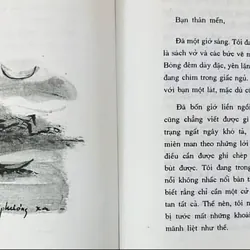 phương xa
Bạn thân mến,
Đã một giờ sáng. Tôi đa
là sách vở và các bức vẽ m
Bóng đêm dày đặc, yên lặn
đang chìm trong giấc ngủ.
với bạn một lát, mặc dù c
Đã bốn giờ liền ngồi
cũng chẳng viết được gì
trạng ngất ngây khó tả,
miên man theo những lời
điều cần được ghi chép
bút được. Tôi đang trong
nỗi không nhấc nổi bàn t
biết rằng chỉ cần một cử
tan tất cả. Thế nên, tôi n
bị tước mất những khoả
mãnh liệt như thế.